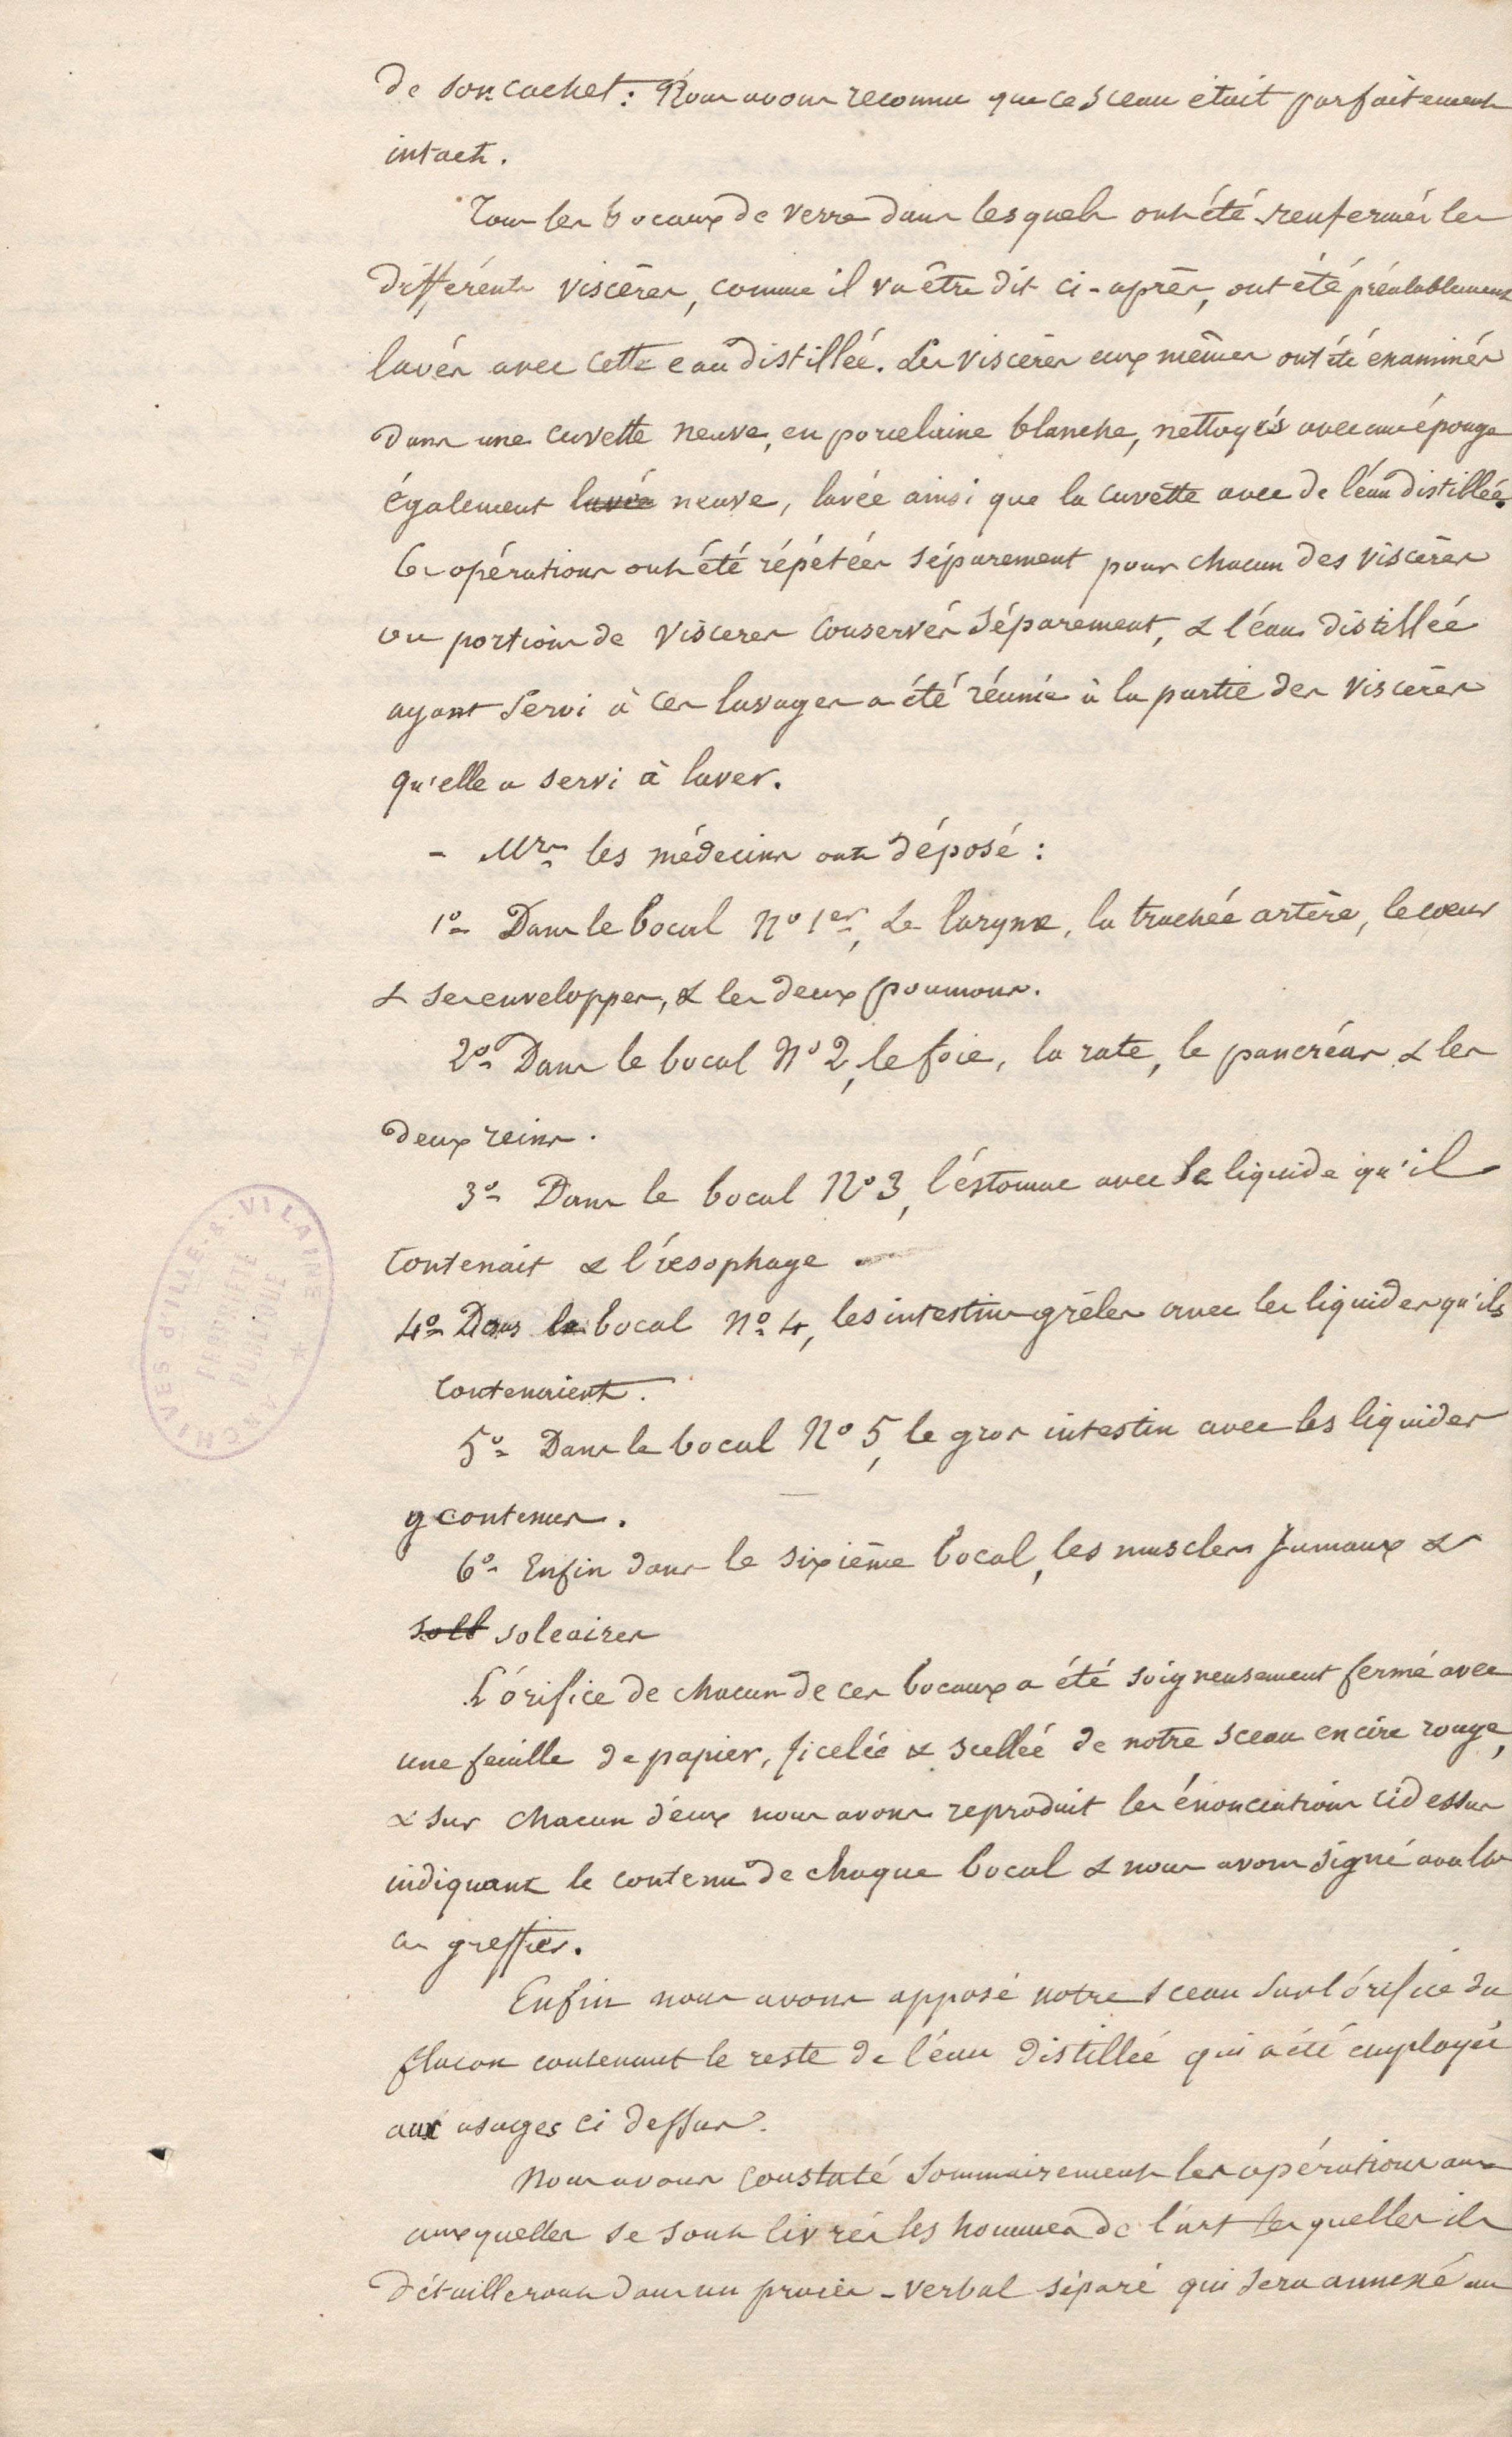 de son cachet : Nous avons reconnu que ce sceau était parfaitement
intact.
Tous les bocaux de verre dans lesquels ont été renfermés les
différents viscères, comme il va être dit ci-après, ont été préalablement
lavés avec cette eau distillée. Les viscères eux mêmes ont été examinés
dans une cuvette neuve, en porcelaine blanche, nettoyés avec une éponge
également lavée neuve, lavée ainsi que la cuvette avec de l'eau distillée.
Ces opérations ont été répétées séparement pour chacun des viscères
ou portions de viscères conservés séparement, & l'eau distillée
ayant servi à ces lavages a été réunie à la partie des viscères
qu'elle a servi à laver.
- Mrs les médecins ont déposé :
1° Dans le bocal N° 1er, Le larynx, la trachée artère, le cœur
& ses enveloppes, & les deux poumons.
2° Dans le bocal N° 2, le foie, la rate, le pancréas & les
deux reins.
3° Dans le bocal N° 3, l'éstomac avec le liquide qu'il
contenait & l'œsophage
4° Dans le bocal N° 4, les intestins grêles avec les liquides qu'ils
contenaient.
5° Dans le bocal N° 5, le gros intestin avec les liquides
y contenus.
6° Enfin dans le sixième bocal, les muscles jumaux &
solt soleaires
L'órifice de chacun de ces bocaux a été soigneusement fermé avec
une feuille de papier, ficelée & scellée de notre sceau en cire rouge,
& sur chacun d'eux nous avons reproduit les énonciations ci dessus
indiquant le contenu de chaque bocal & nous avons signé avec le
greffier.
Enfin nous avons apposé notre sceau sur l'órifice du
flacon contenant le reste de l'eau distillée qui a été employée
aux usages ci dessus.
Nous avons constaté sommairement les opérations aux
auxquelles se sont livrés les hommes de l'art lesquelles ils
détailleront dans un procès-verbal séparé qui sera annexé au
ARCHIVES D'ILLE-&-VILAINE
PROPRIÉTÉ
PUBLIQUE